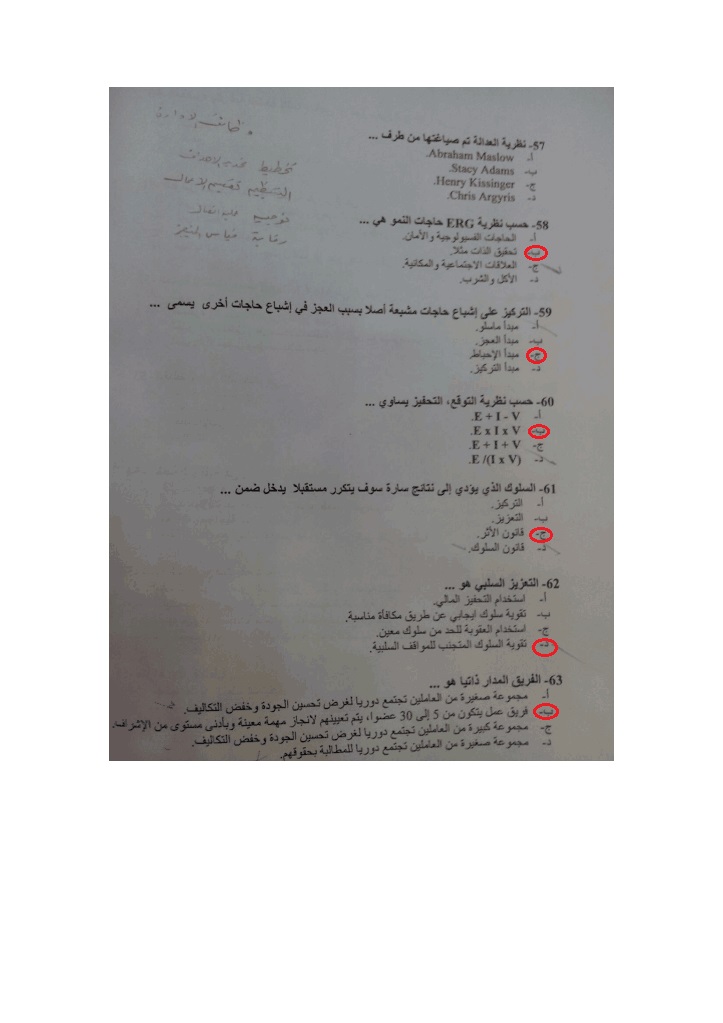 وظائف الإدارة
تخطيط تحديد الأهداف
التنظيم تقسيم الأعمال
توجيه
رقابة قياس
57- نظرية العدالة تم صياغتها من طرف ...
أ- Abraham Maslow.
ب- Stacy Adams.
ج- Henry Kissinger.
د- Chris Argyris.
58- حسب نظرية ERG حاجات النمو هي ...
أ- الحاجات الفسيولوجية والأمان.
ب- تحقيق الذات مثلا.
ج- العلاقات الاجتماعية والمكانية.
د- الأكل والشرب.
59- التركيز على إشباع حاجات مشبعة أصلا بسبب العجز في إشباع حاجات أخرى يسمى ...
أ- مبدأ ماسلو.
ب- مبدأ العجز.
ج- مبدأ الإحباط.
د- مبدأ التركيز.
60- حسب نظرية التوقع، التحفيز يساوي ...
أ- E + I - V.
ب- E x I x V.
ج- E + I + V.
د- E /(I x V).
61- السلوك الذي يؤدي إلى نتائج سارة سوف يتكرر مستقبلا يدخل ضمن ...
أ- التركيز.
ب- التعزيز.
ج- قانون الأثر.
د- قانون السلوك.
62- التعزيز السلبي هو ...
أ- استخدام التحفيز المالي.
ب- تقوية سلوك ايجابي عن طريق مكافأة مناسبة.
ج- استخدام العقوبة للحد من سلوك معين.
د- تقوية السلوك المتجنب للمواقف السلبية.
63- الفريق المدار ذاتيا هو ...
أ- مجموعة صغيرة من العاملين تجتمع دوريا لغرض تحسين الجودة وخفض التكاليف.
ب- فريق عمل يتكون من 5 إلى 30 عضوا، يتم تعيينهم لانجاز مهمة معينة وبأدنى مستوى من الإشراف.
ج- مجموعة كبيرة من العاملين تجتمع دوريا لغرض تحسين الجودة وخفض التكاليف.
د- مجموعة صغيرة من العاملين تجتمع دوريا للمطالبة بحقوقهم.